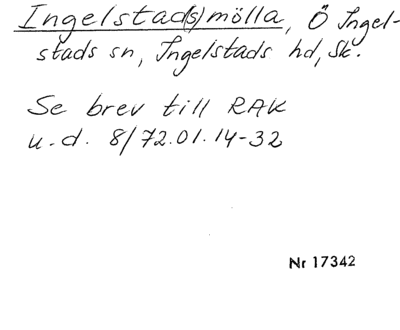 Ingelstad(s)mölla, Ö Ingel-
stads sn, Ingelstads hd, Sk.
Se brev till RAK
u.d. 8/72.01.14-32
Nr 17342